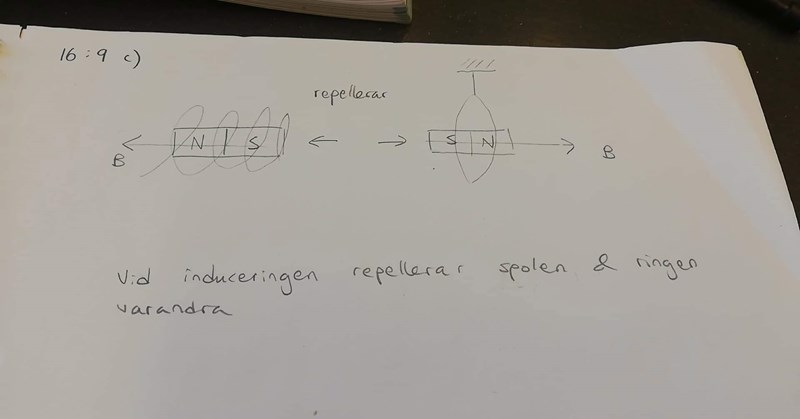 16:9 c)
repellerar
N S
S N
B
B
Vid induceringen repellerar spolen & ringen
varandra